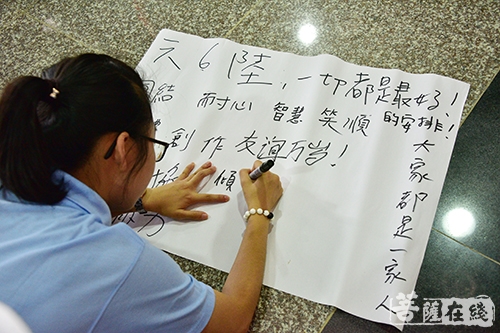 6 陸，一切都是最好！
的安排！
結 耐心 智慧 笑順
創作 友誼万岁！
傾
大家都是一家人
菩薩在綫